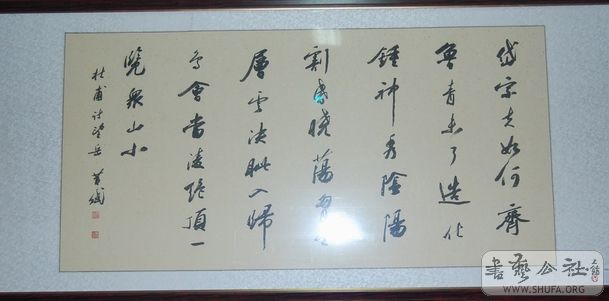 岱宗夫如何齊
魯青未了造化
鍾神秀陰陽
割昏曉蕩胸生
層雲決眦入歸
鳥會當凌絕頂一
覽眾山小
杜甫詩望岳
書藝公社
WWW.SHUFA.ORG